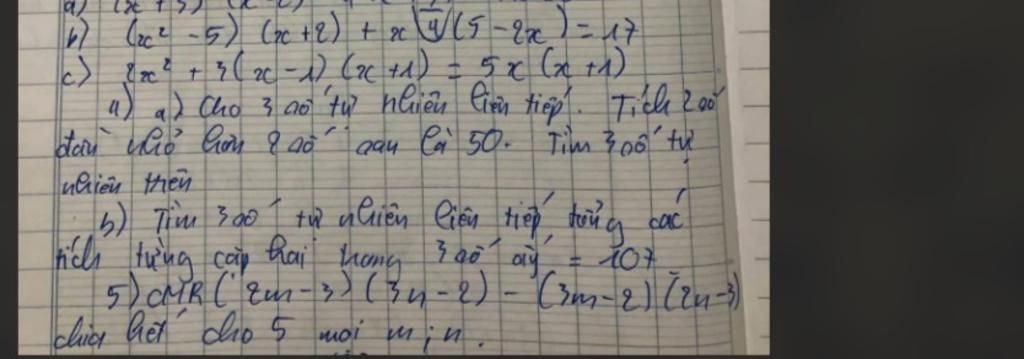 b) (x² - 5) (x+2) + x (5 - 2x) = 17
c) 2x² + 3(x-1) (x+1) = 5x (x+1)
4) a) Cho 3 số tự nhiên liên tiếp. Tích 2 số
đầu nhỏ hơn 2 số sau là 50. Tìm 3 số tự
nhiên trên
b) Tìm 3 số tự nhiên liên tiếp tổng các
tích từng cặp hai trong 3 số ấy = 107
5) CMR (2m-3) (3n-2) - (3m-2) (2n-3)
chia hết cho 5 mọi m ; n.